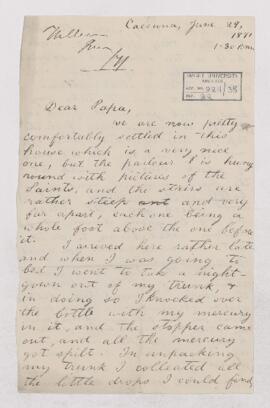 Cacouna, June 29,
1881
1-30 P.M.
Dear Papa,
we are now pretty
comfortably settled in this
house which is a very nice
one, but the parlour is hung
round with pictures of the
Saints, and the stairs are
rather steep and very
far apart, each one being a
whole foot above the one before
it.
I arrived here rather late
and when I was going to
bed I went to take a night-
gown out of my trunk, &
in doing so I knocked over
the bottle with my mercury
in it, and the stopper came
out, and all the mercury
got spilt. In unpacking
my trunk I colleated all
the little drops I could find,